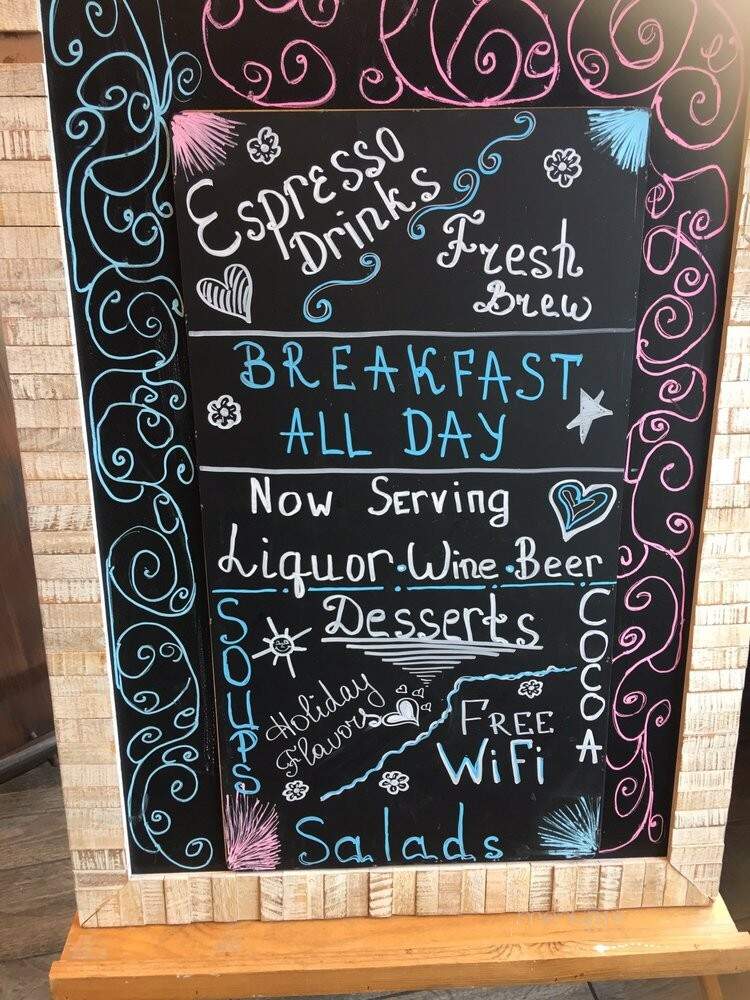 Espresso
Drinks
Fresh
Brew
BREAKFAST
ALL DAY
Now Serving
Liquor·Wine·Beer
SOUPS
Desserts
COCOA
Holiday
Flavors
FREE
WiFi
Salads